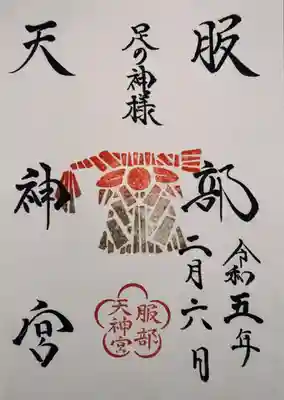 服部
天神宮
足の神様
令和五年
二月六日
服部
天神宮